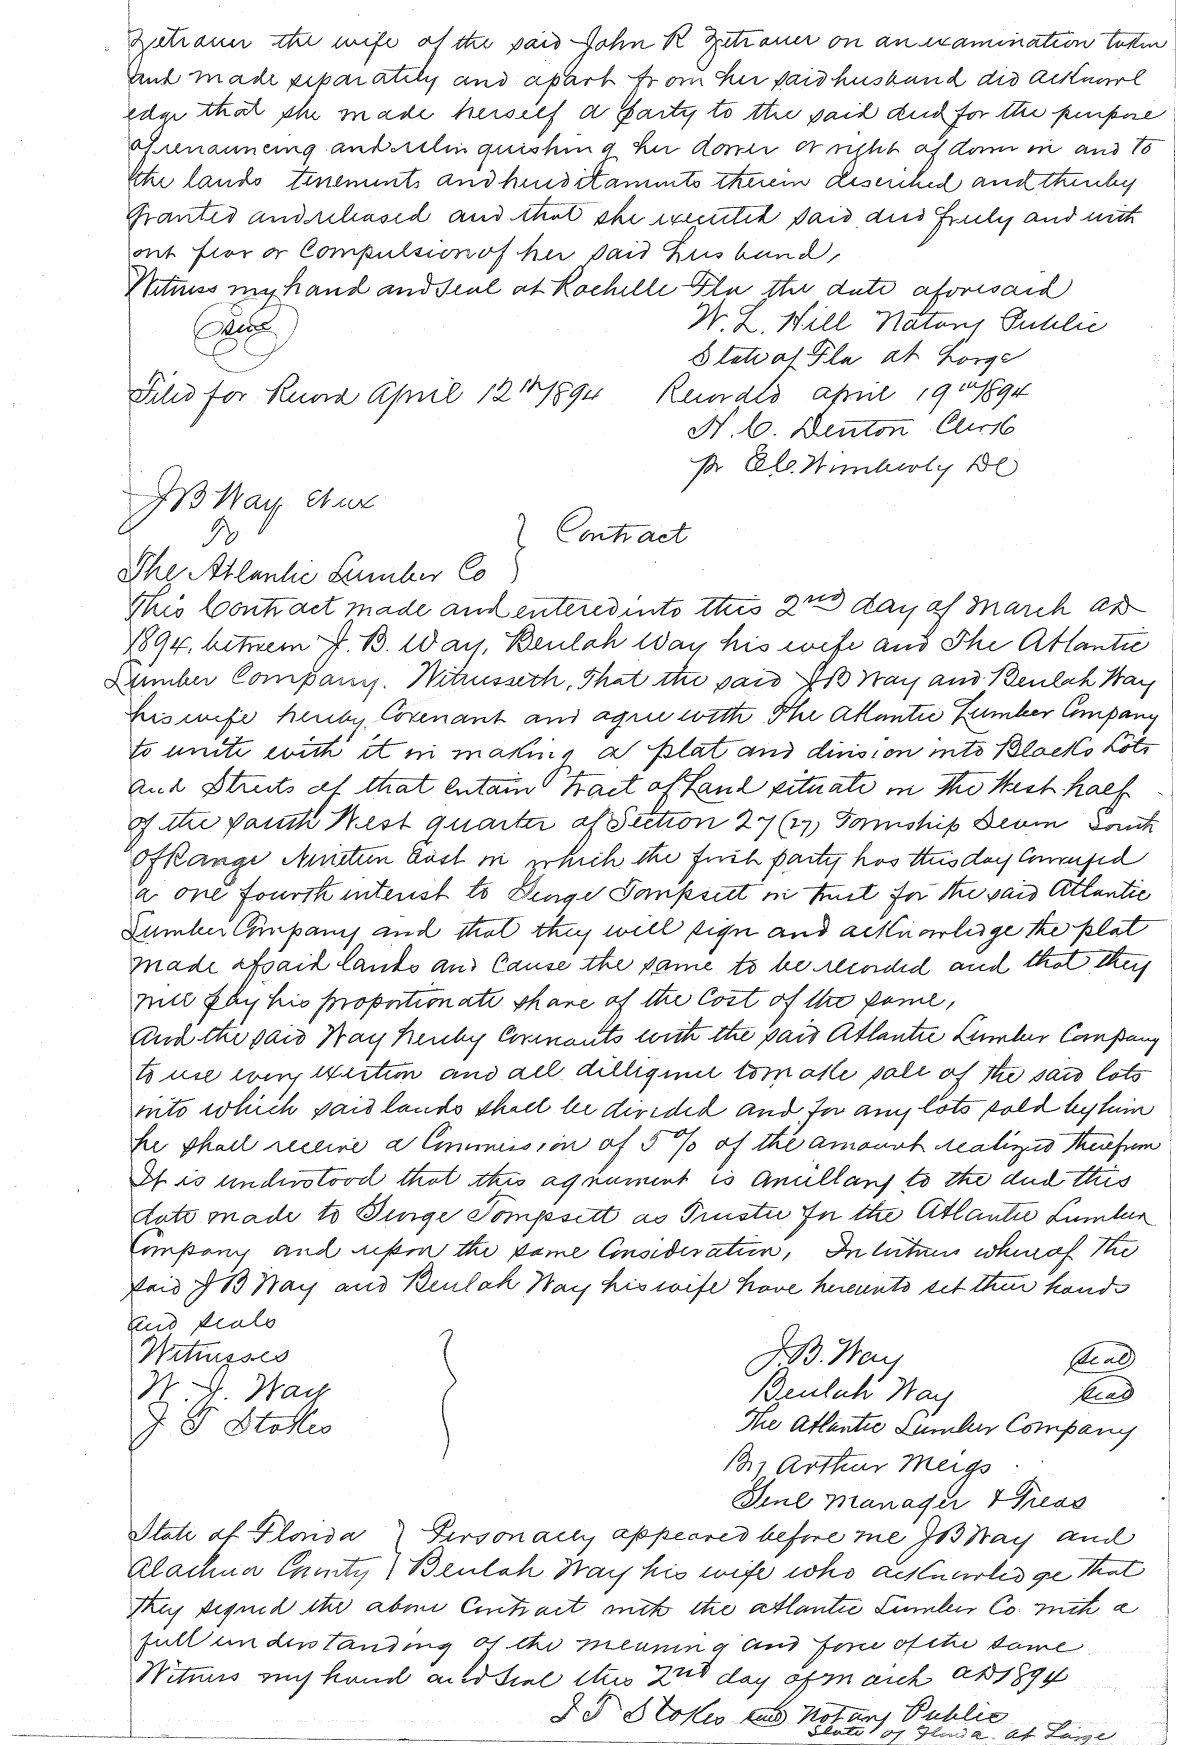 Zetrouer the wife of the said John R Zetrouer on an examination taken
and made separately and apart from her said husband did acknowl
edge that she made herself a party to the said deed for the purpose
of renouncing and relinquishing her dower or right of dower in and to
the lands tenements and hereditaments therein described and thereby
Granted and released and that she executed said deed freely and with
out fear or Compulsion of her said husband,
Witness my hand and seal at Rochelle Fla the date aforesaid
Seal W. L. Hill Notary Public
State of Fla at Large
Filed for Record April 12th 1894 Recorded april 19th 1894
H. C. Denton Clerk
pr Wimberly DC
J B Way et ux
To } Contract
The Atlantic Lumber Co
This Contract made and entered into this 2nd day of March AD
1894, between J. B. Way, Beulah Way his wife and The Atlantic
Lumber Company. Witnesseth, That the said J B Way and Beulah Way
his wife hereby Covenant and agree with The Atlantic Lumber Company
to unite with it in making a plat and division into Blocks Lots
and Streets of that certain tract of Land situate in the West half
of the South West quarter of Section 27 (27) Township Seven South
of Range Nineteen East in which the first party has this day Conveyed
a one fourth interest to George Tompsett in trust for the said Atlantic
Lumber Company and that they will sign and acknowledge the plat
made of said lands and Cause the same to be recorded and that they
will pay his proportionate share of the Cost of the same,
And the said Way hereby Covenants with the said Atlantic Lumber Company
to use every exertion and all dilligence to make sale of the said lots
into which said lands shall be divided and for any lots sold by him
he shall receive a Commission of 5% of the amount realized therefrom
It is understood that this agreement is Ancillary to the deed this
date made to George Tompsett as Trustee for the Atlantic Lumber
Company and upon the same Consideration, In witness whereof The
said J B Way and Beulah Way his wife have hereunto set their hands
and seals
Witnesses J. B. Way Seal
W. J. Way Beulah Way Seal
J T Stokes The Atlantic Lumber Company
By Arthur Meigs
Genl Manager & Treas
State of Florida } Personally appeared before me J B Way and
Alachua County } Beulah Way his wife who acknowledge that
they signed the above Contract with the atlantic Lumber Co with a
full understanding of the meaning and force of the same
Witness my hand and Seal this 2nd day of March AD 1894
J T Stokes Seal Notary Public
State of Florida at Large